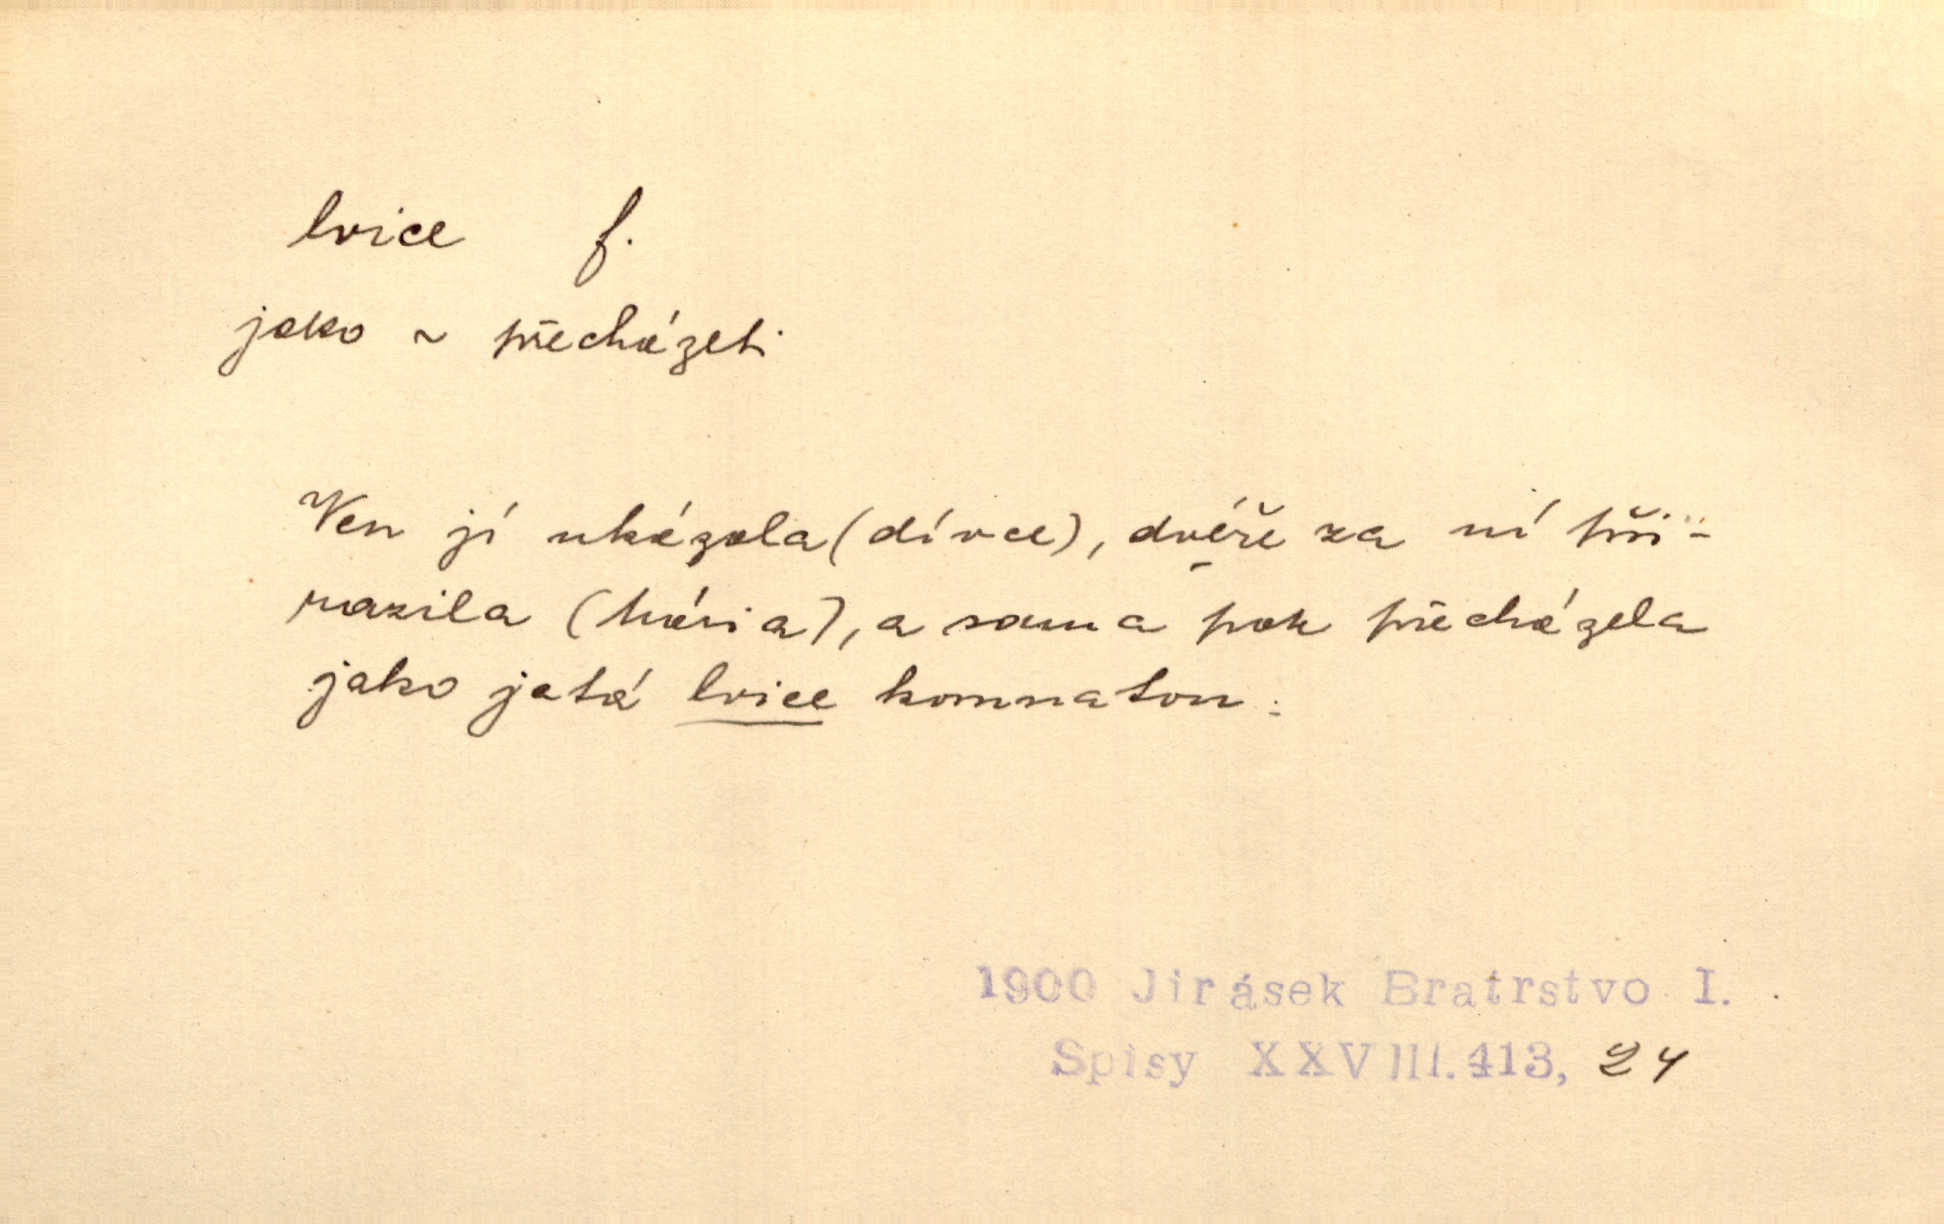 lvice f.
jako ~ přecházeti
Ven jí ukázala (dívce), dvéře za ní při-
razila (Mária), a sama pak přecházela
jako jatá lvice komnatou.
1900 Jirásek Bratrstvo I.
Spisy XXVIII. 413, 24